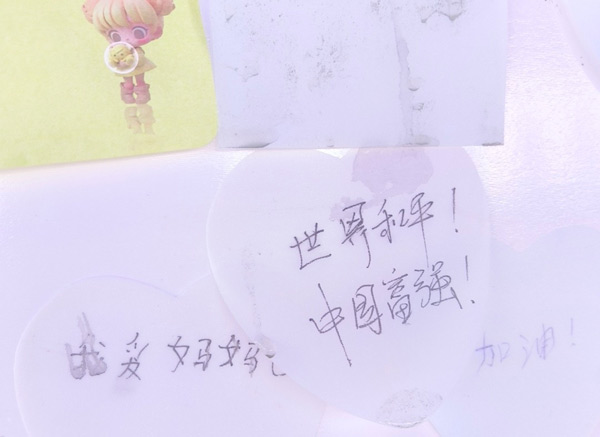 世界和平！
中国富强！
我爱妈妈
加油！